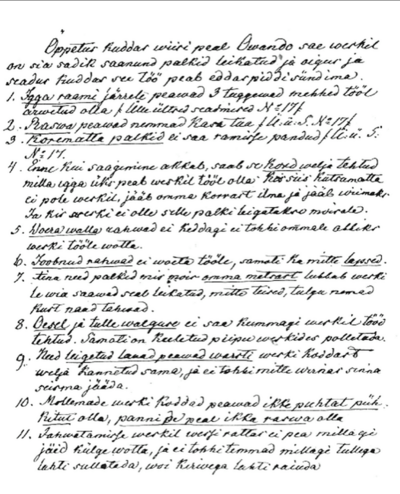 Öppetus kuddas wiisi peal Owando sae werkil
on sia sadik saanund palkid leikatud ja oigus ja
seadus kuddas see töö peab eddaspiddi sündima.
1. Igga raami järrele peawad 3 tuggewad mehhed tööl
arwetud olla
2. Raswa peawad nemmad
3. Korematta palkid ei saa ramisse pandud
No 17.
4. Enne kui saagimine akkab, saab se Kord welja tehtud
milla igga üks peab werkil tööl olla. Kes siis kutsumatta
ei pole werkil, jääb omma korrast ilma ja jääb wiimaks.
Ja kis werki ei olle selle palki leigatakse
5. Woera walla rahwad ei keddagi ei tohhi ommale abbiks
werki tööle wotta.
6. Joobnud rahwad ei woeta tööle, samoti ka mitte lapsed.
7. need palkid mis omma metsast lubbab werki
le wia saawad seal leikatud, mitte teised, tulga nemad
kust naad tahwad.
8. Oesel ja tulle walguse ei saa kummagi werkil tööd
tehtud. Samoti on keeletud piipu werkides polletada.
9. Need leigetud lauad peawad warsti werki
welja kannetud sama, ja ei tohhi mitte senna
seisma jääda.
10. Mollemade werki koddad peawad ikke puhtat püh-
kitut olla, panni de peal ikka raswa olla
11. Jahwatamisse werkil wessi rattas ei pea millagi
jäid külge wotta, ja ei tohhi temmad millagi tullega
lahti sullatada, woi kirwega lahti raiuda